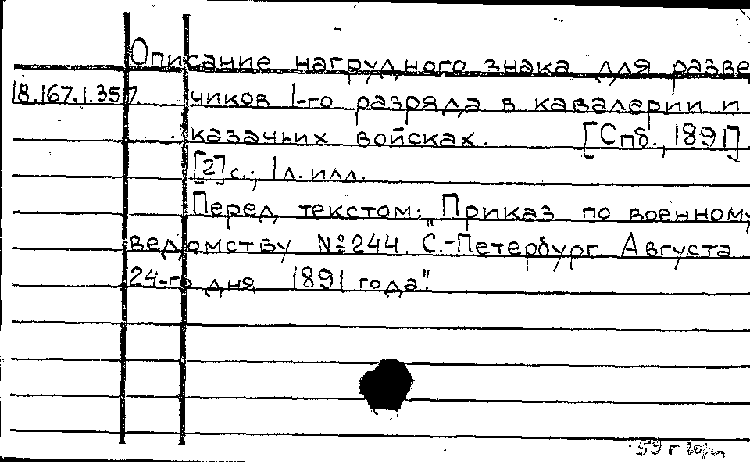 Описание нагрудного знака для разве
18.167.1.357. чиков 1-го разряда в кавалерии и
казачьих войсках. [Спб., 1891]
[2] с.; 1 л. илл.
Перед текстом: "Приказ по военному
ведомству № 244. С.-Петербург Августа
24-го дня 1891 года".